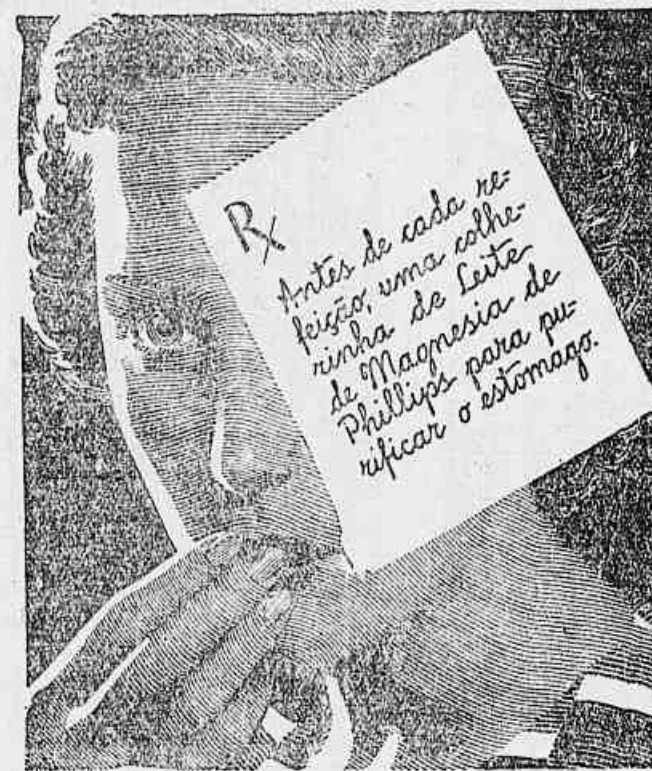 Rx
Antes de cada re-
feição, uma colhe-
rinha de Leite
de Magnesia de
Phillips para pu-
rificar o estomago.